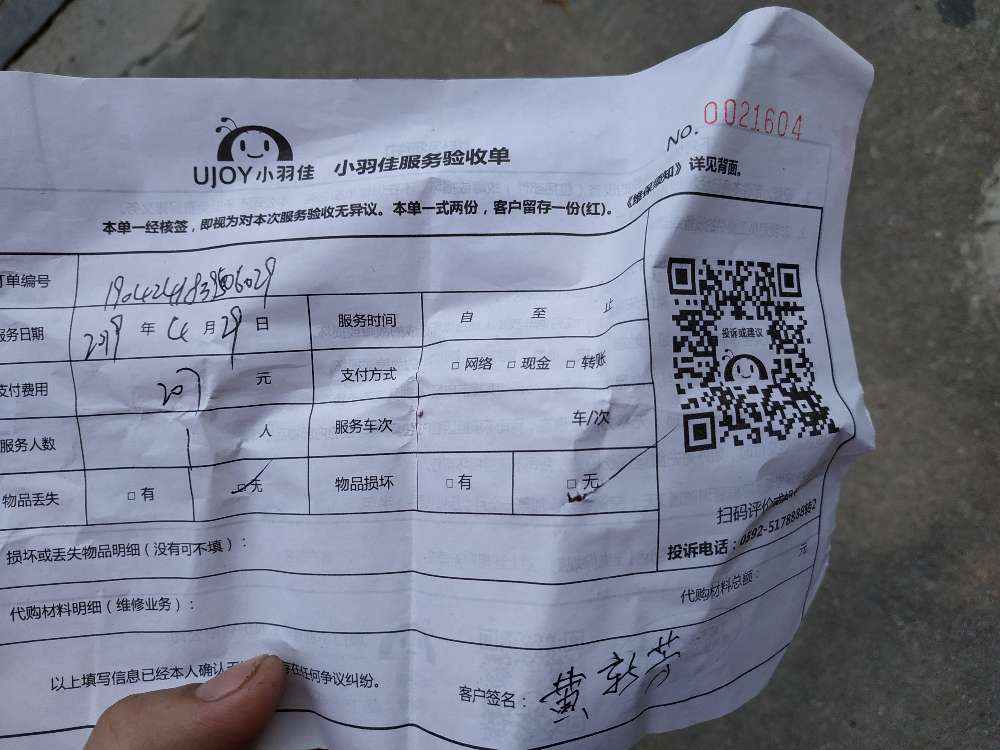 NO. 0021604
UJOY小羽佳 小羽佳服务验收单
本单一经核签，即视为对本次服务验收无异议。本单一式两份，客户留存一份(红)。《维保须知》详见背面。
订单编号
服务日期 2019 年 4 月 29 日 服务时间 自 至 止
支付费用 207 元 支付方式 □网络 □现金 □转账
服务人数 1 人 服务车次 车/次
物品丢失 □有 □无 物品损坏 □有 □无
投诉或建议
扫码评价
投诉电话：0592-5178888转2
损坏或丢失物品明细（没有可不填）：
代购材料明细（维修业务）： 代购材料总额： 元
以上填写信息已经本人确认无 存在任何争议纠纷。
客户签名：